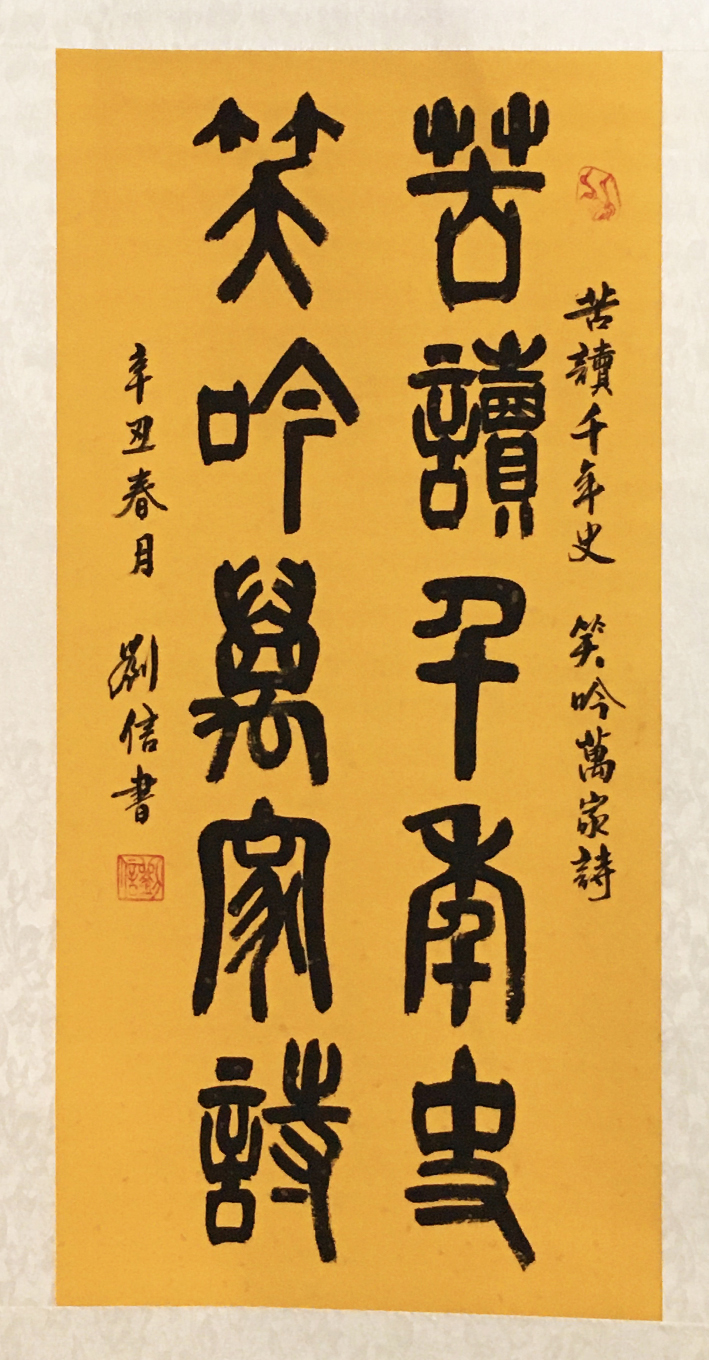 苦讀千年史 笑吟萬家詩
苦讀千年史
笑吟萬家詩
辛丑春月 劉信書
劉信